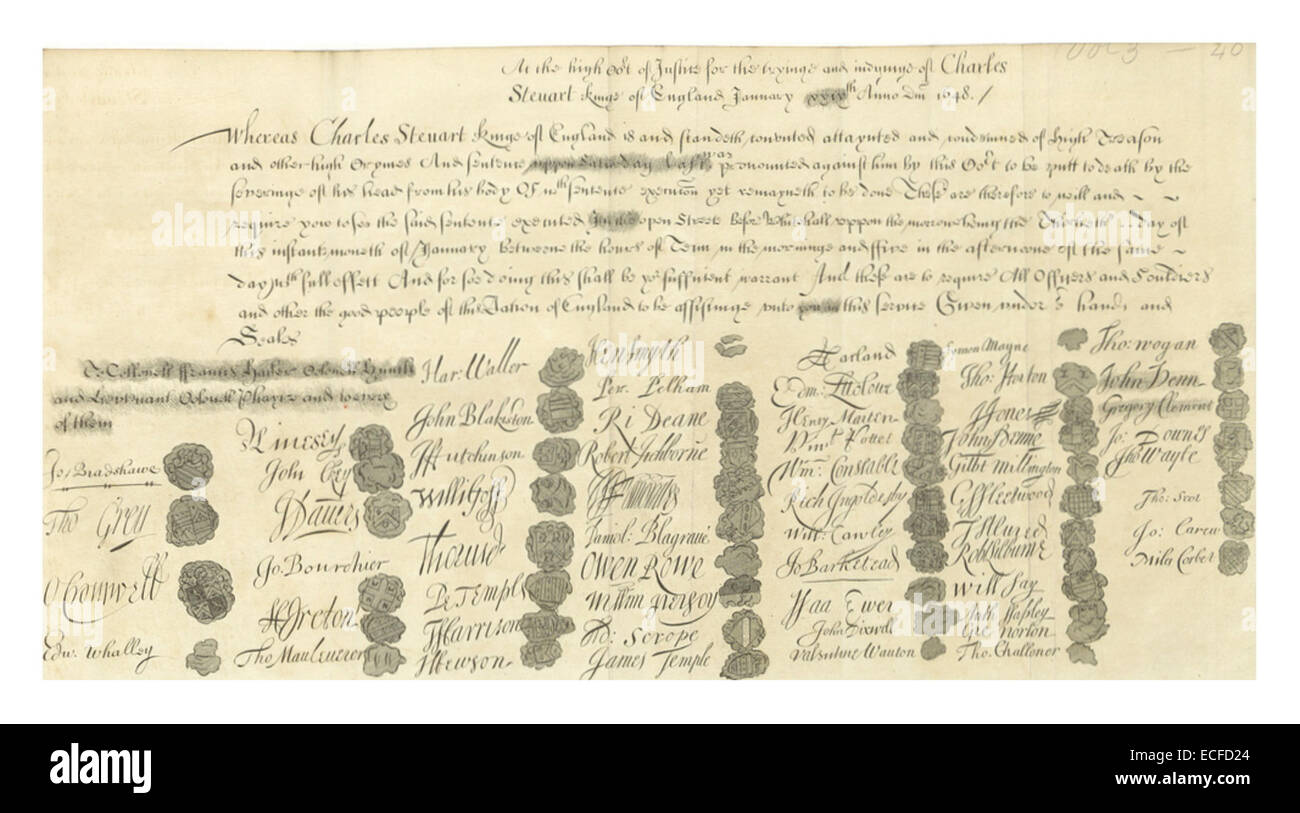 At the high Cot of Justice for the tryinge and iudginge of Charles
Steuart Kinge of England January xxixth Anno Dm 1648./
Whereas Charles Steuart Kinge of England is and standeth convicted attaynted and condemned of High Treason
and other high Crymes And sentence uppon Saturday last was pronounced against him by this Cot to be putt to death by the
severinge of his head from his body Of wch sentence execucon yet remayneth to be done These are therefore to will and
require you to see the said sentence executed In the open Streete before Whitehall uppon the morrowe being the Thirtieth day of
this instant moneth of January betweene the hours of Tenn in the morninge and ffive in the afternoone of the same
day wth full effect And for soe doing this shall be yor sufficient warrant And these are to require All Officers and Souldiers
and other the good people of this Nation of England to be assistinge unto you in this service Given under or hands and
Seales
To Collonell ffrancis Hacker Colonell Huncks
and Lieutenant Colonell Phayre and to every
of them
Jo: Bradshawe
Tho Grey
O Cromwell
Edw. Whalley
M Livesey
John Okey
J Davers
Jo. Bourchier
H Ireton
Tho Mauleverer
Har: Waller
John Blakiston
J Hutchinson
Willi Goff
Tho Pride
P Temple
T Harrison
J Hewson
Hen Smyth
Per. Pelham
Ri Deane
Robert Tichborne
H Edwardes
Daniel Blagrave
Owen Rowe
William Purefoy
Ad: Scrope
James Temple
A Garland
Edm: Ludlowe
Henry Marten
Vint Potter
Wm: Constable
Rich Ingoldesby
Will: Cawley
Jo Barkstead
Isaa Ewer
John Dixwell
Valentine Wauton
Symon Mayne
Tho: Horton
J Jones
John Penne
Gilbt Millington
G ffleetwood
J Alured
Rob Lilburne
Will Say
Anth Stapley
Gre Norton
Tho: Challoner
Tho: wogan
John Venn
Gregory Clement
Jo: Downes
Tho Wayte
Tho: Scot
Jo: Carew
Miles Corbet
alamy
ECFD24
www.alamy.com